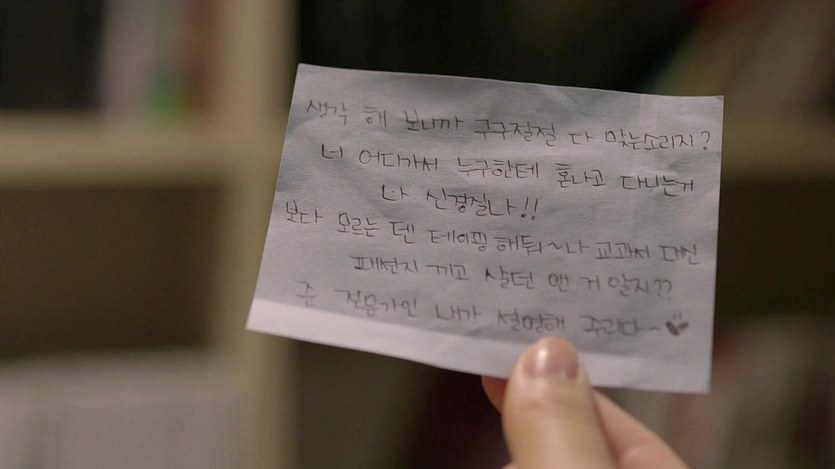 생각 해 보니까 구구절절 다 맞는소리지?
너 어디가서 누구한테 혼나고 다니는거
나 신경질나!!
보다 모르는 덴 테이핑 해둬~나 교과서 대신
패션지 끼고 살던 앤 거 알지??
준 전문가인 내가 설명해 주리다~